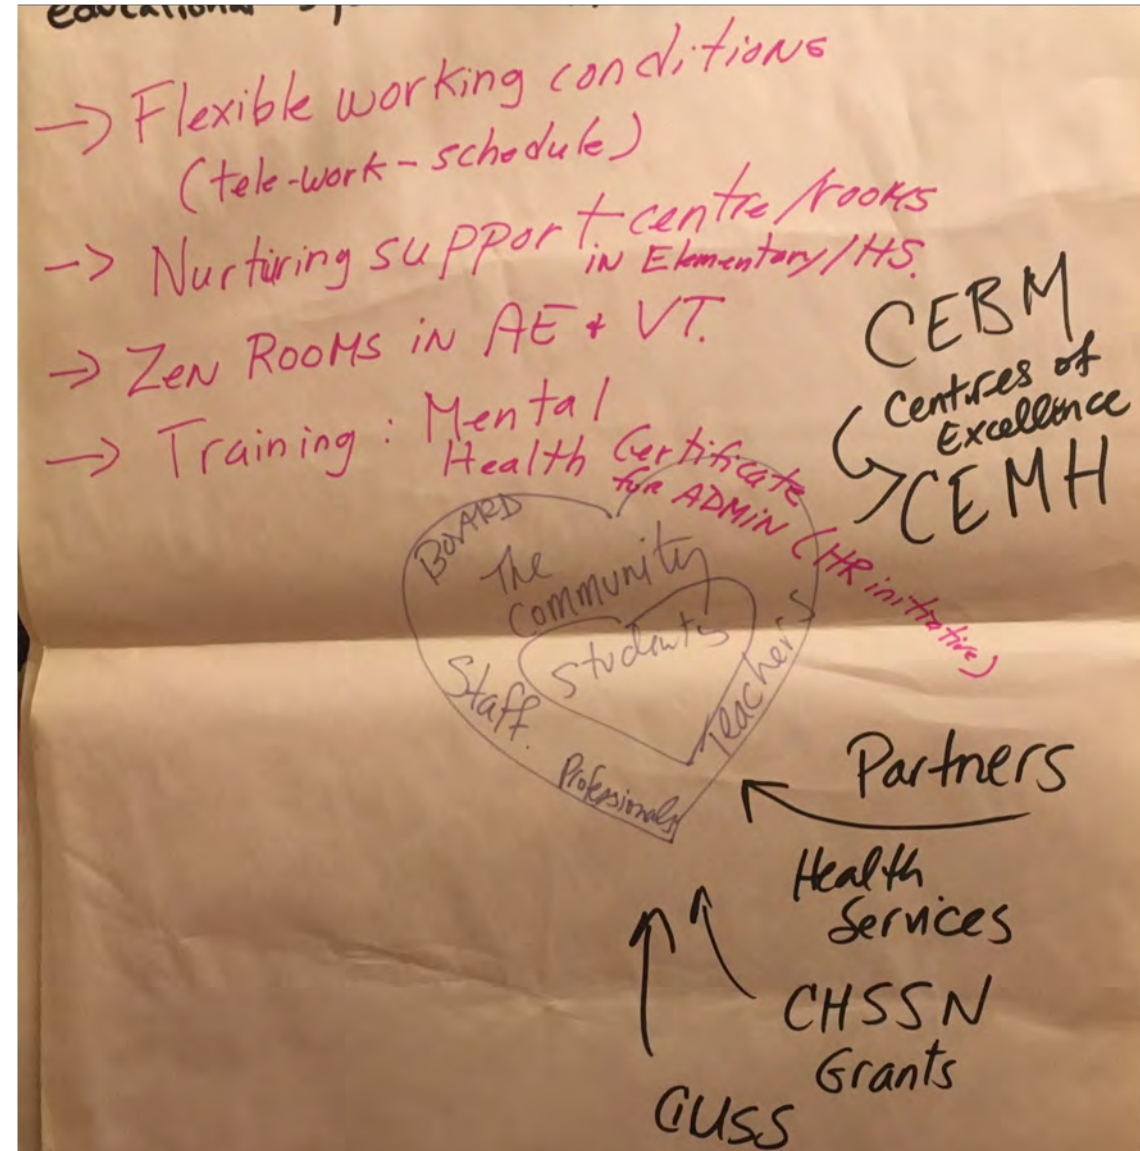 educational
→ Flexible working conditions
(tele-work - schedule)
→ Nurturing support centre/rooms
in Elementary/HS.
→ Zen Rooms in AE + VT.
→ Training: Mental
Health Certificate
for ADMIN (HR initiative)
CEBM
Centres of
Excellence
CEMH
BOARD
The
Community
Students
Staff.
Teachers
Professionals
Partners
Health
Services
CHSSN
Grants
CIUSS